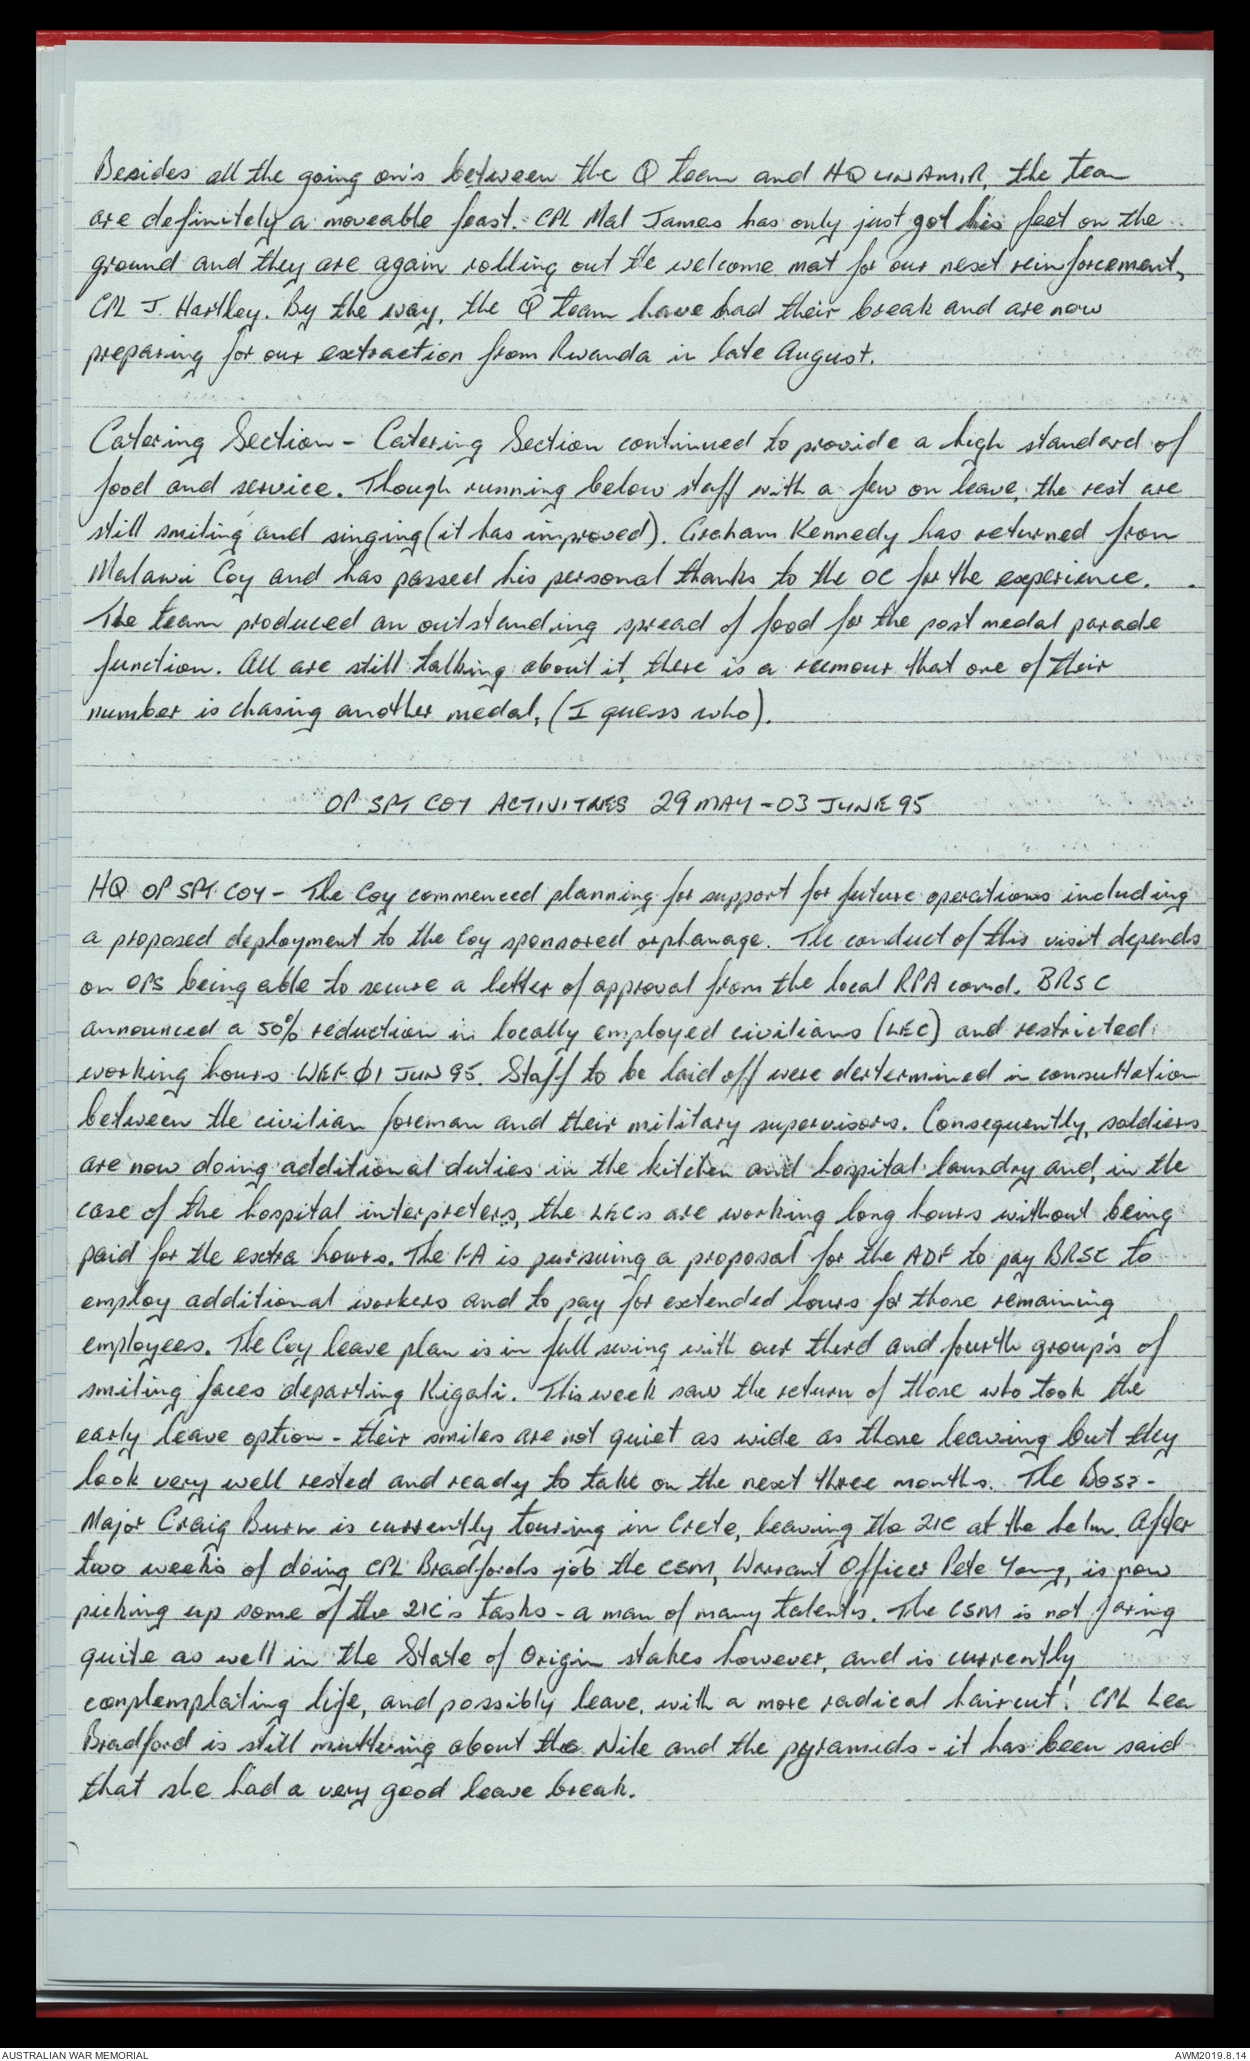 Besides all the going on's between the Q team and HQ UNAMIR, the team
are definitely a moveable feast. CPL Mal James has only just got his feet on the
ground and they are again rolling out the welcome mat for our next reinforcement,
CPL J. Hartley. By the way, the Q team have had their break and are now
preparing for our extraction from Rwanda in late August.
Catering Section - Catering Section continued to provide a high standard of
food and service. Though running below staff with a few on leave, the rest are
still smiling and singing (it has improved). Graham Kennedy has returned from
Malawi Coy and has passed his personal thanks to the OC for the experience.
The team produced an outstanding spread of food for the post medal parade
function. All are still talking about it, there is a rumour that one of their
number is chasing another medal, (I guess who).
OP SPT COY ACTIVITIES 29 MAY - 03 JUNE 95
HQ OP SPT COY - The Coy commenced planning for support for future operations including
a proposed deployment to the Coy sponsored orphanage. The conduct of this visit depends
on OPS being able to secure a letter of approval from the local RPA comd. BRSC
announced a 50% reduction in locally employed civilians (LEC) and restricted
working hours WEF Ø1 JUN 95. Staff to be laid off were dertermined in consultation
between the civilian foreman and their military supervisors. Consequently, soldiers
are now doing additional duties in the kitchen and hospital laundry and, in the
case of the hospital interpreters, the LECs are working long hours without being
paid for the extra hours. The FA is pursuing a proposal for the ADF to pay BRSC to
employ additional workers and to pay for extended hours for those remaining
employees. The Coy leave plan is in full swing with our third and fourth group's of
smiling faces departing Kigali. This week saw the return of those who took the
early leave option - their smiles are not quiet as wide as those leaving but they
look very well rested and ready to take on the next three months. The Boss -
Major Craig Burn is currently touring in Crete, leaving the 2IC at the helm. After
two weeks of doing CPL Bradfords job the CSM, Warrant Officer Pete Yong, is now
picking up some of the 2IC's tasks - a man of many talents. The CSM is not faring
quite as well in the State of Origin stakes however, and is currently
comtemplating life, and possibly leave, with a more radical haircut! CPL Lea
Bradford is still muttering about the Nile and the pyramids - it has been said
that she had a very good leave break.
AUSTRALIAN WAR MEMORIAL
AWM2019.8.14